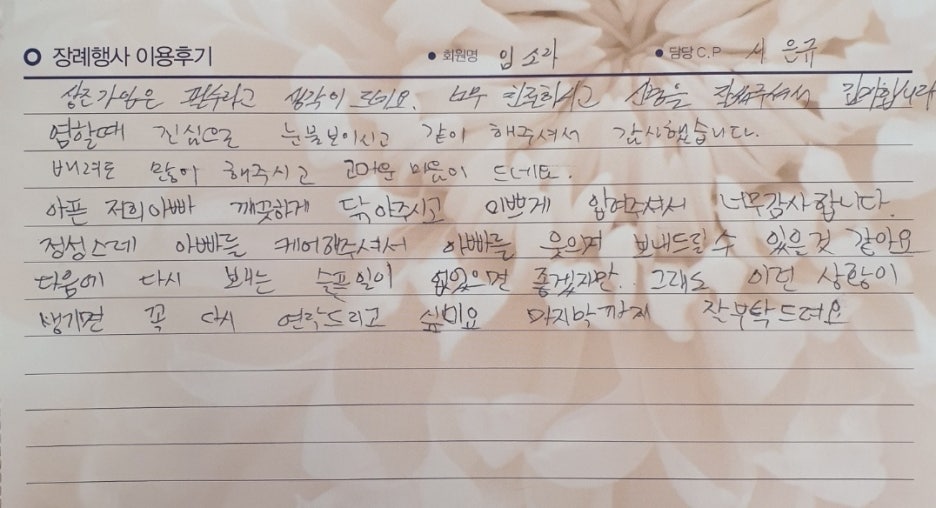 장례행사 이용후기 • 회원명 임소라 • 담당 C.P 서은규
상조가입은 필수라고 생각이 드네요. 너무 친절하시고 신경을 잘써주셔서 감사합니다
염할때 진심으로 눈물보이시고 같이 해주셔서 감사했습니다.
배려도 많이 해주시고 고마운 마음이 드네요.
아픈 저희아빠 깨끗하게 닦아주시고 이쁘게 입혀주셔서 너무감사합니다.
정성스레 아빠를 케어해주셔서 아빠를 웃으며 보내드릴수 있은것 같아요
다음에 다시 보내는 슬픈일이 없었으면 좋겠지만.. 그래도 이런 상황이
생기면 꼭 다시 연락드리고 싶네요 마지막까지 잘부탁드려요